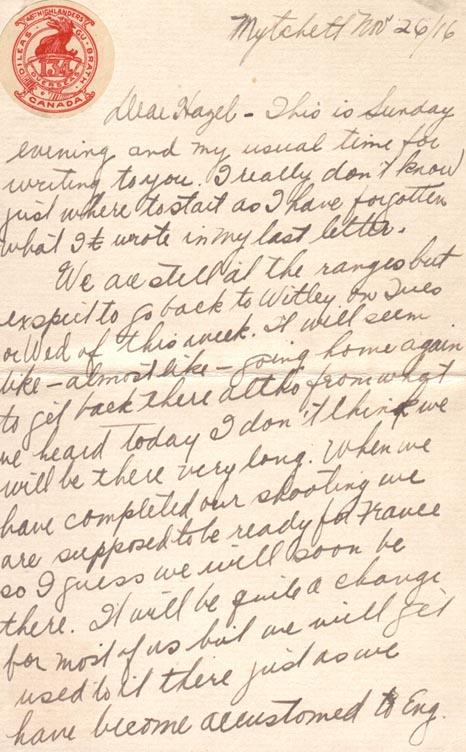 48TH HIGHLANDERS
DILEAS GU BRATH
134
OVERSEAS
CANADA
Mytchett Nov 26/16
Dear Hazel - This is Sunday
evening and my usual time for
writing to you. I really don't know
just where to start as I have forgotten
what I wrote in my last letter.
We are still at the ranges but
expect to go back to Witley on Tues
or Wed of this week. It will seem
like - almost like - going home again
to get back there altho from what
we heard today I don't think we
will be there very long. When we
have completed our shooting we
are supposed to be ready for France
so I guess we will soon be
there. It will be quite a change
for most of us but we will get
used to it there just as we
have become accustomed to Eng.